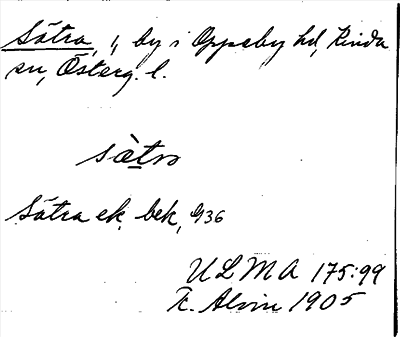 Sätra, 1, by i Oppeby hd, Kinda
sn, Österg. l.
sä̀tra
Sätra ek. bek. 936
ULMA 175:99
K. Alvin 1905